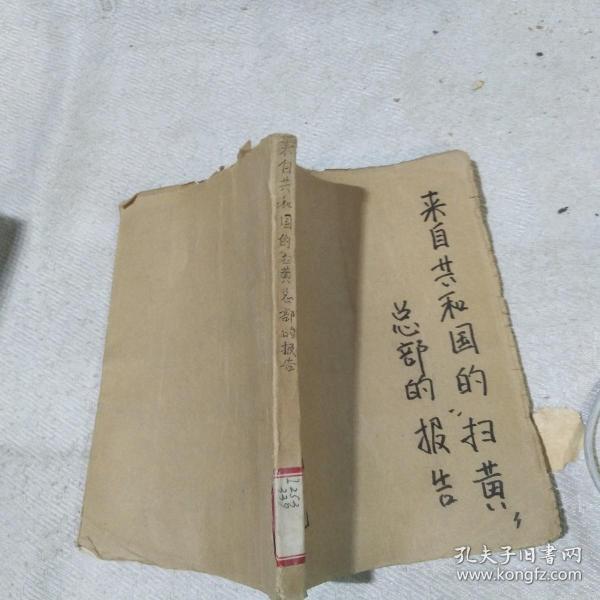 来自共和国的“扫黄”
总部的报告
来自共和国的扫黄总部的报告
I253
338
孔夫子旧书网
www.kongfz.com